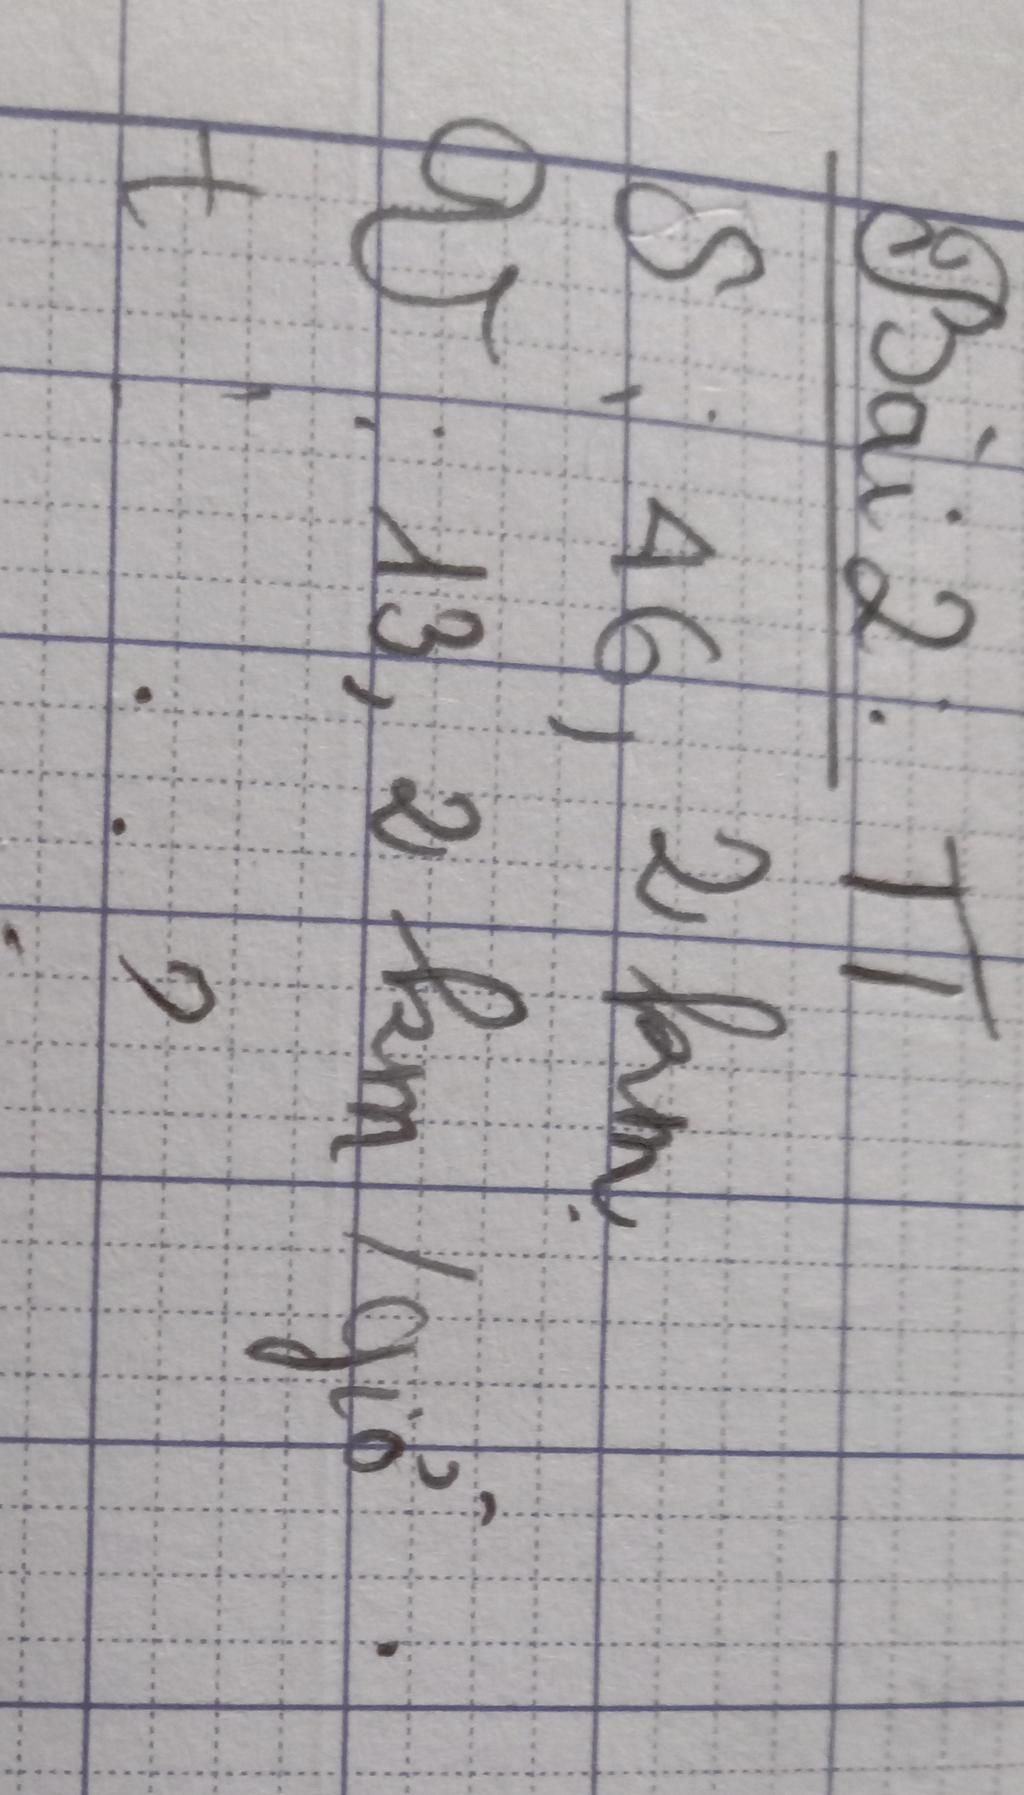 Bài 2: TT
S : 46,2 km
V : 13,2 km/giờ
t : ?